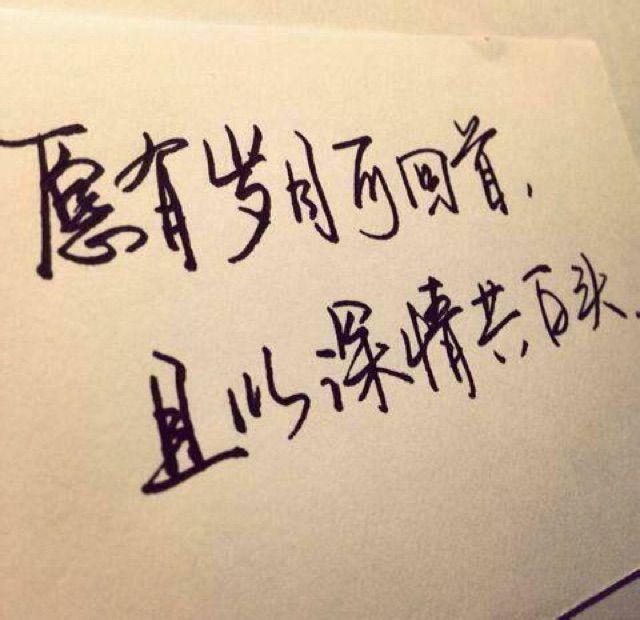 愿有岁月可回首，
且以深情共百头.